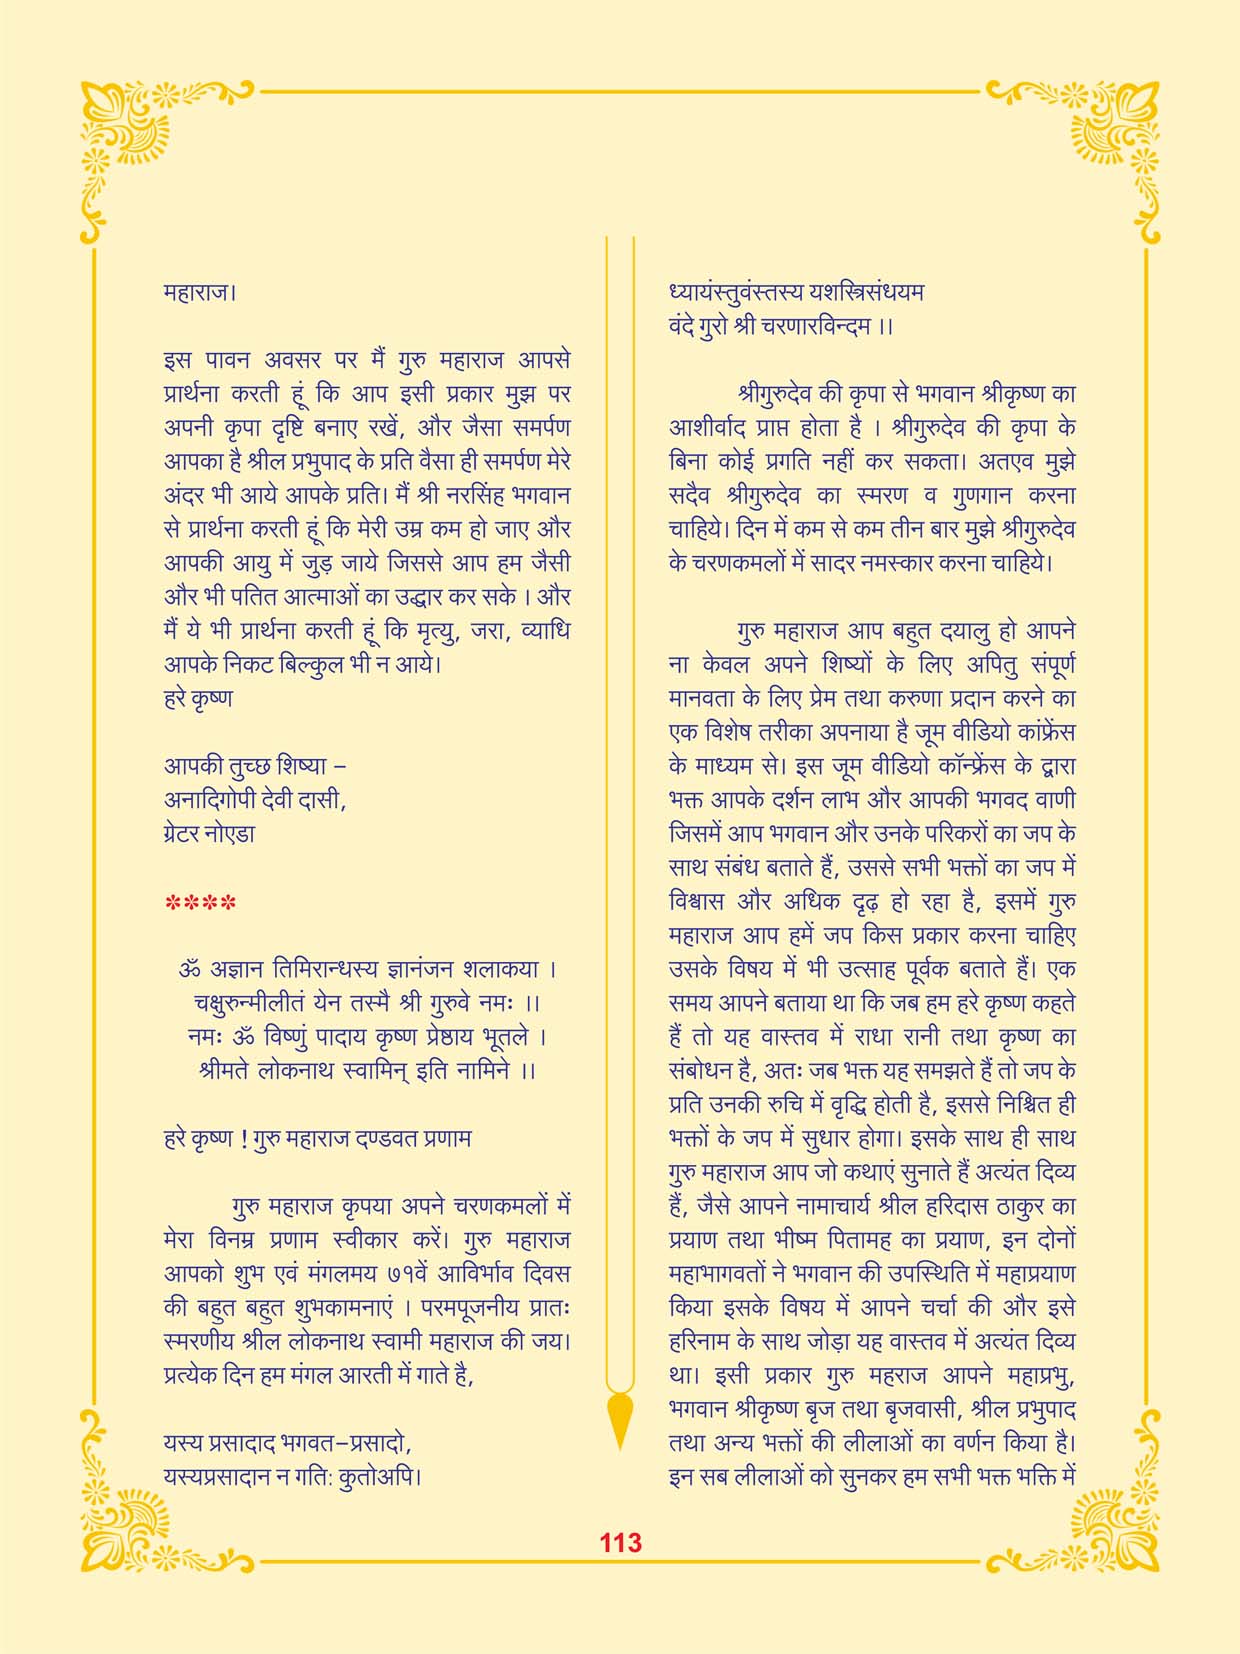 महाराज।
इस पावन अवसर पर मैं गुरु महाराज आपसे
प्रार्थना करती हूं कि आप इसी प्रकार मुझ पर
अपनी कृपा दृष्टि बनाए रखें, और जैसा समर्पण
आपका है श्रील प्रभुपाद के प्रति वैसा ही समर्पण मेरे
अंदर भी आये आपके प्रति। मैं श्री नरसिंह भगवान
से प्रार्थना करती हूं कि मेरी उम्र कम हो जाए और
आपकी आयु में जुड़ जाये जिससे आप हम जैसी
और भी पतित आत्माओं का उद्धार कर सके । और
मैं ये भी प्रार्थना करती हूं कि मृत्यु, जरा, व्याधि
आपके निकट बिल्कुल भी न आये।
हरे कृष्ण
आपकी तुच्छ शिष्या –
अनादिगोपी देवी दासी,
ग्रेटर नोएडा
****
ॐ अज्ञान तिमिरान्धस्य ज्ञानंजन शलाकया ।
चक्षुरुन्मीलीतं येन तस्मै श्री गुरुवे नमः ।।
नमः ॐ विष्णुं पादाय कृष्ण प्रेष्ठाय भूतले ।
श्रीमते लोकनाथ स्वामिन् इति नामिने ।।
हरे कृष्ण ! गुरु महाराज दण्डवत प्रणाम
गुरु महाराज कृपया अपने चरणकमलों में
मेरा विनम्र प्रणाम स्वीकार करें। गुरु महाराज
आपको शुभ एवं मंगलमय ७१वें आविर्भाव दिवस
की बहुत बहुत शुभकामनाएं । परमपूजनीय प्रातः
स्मरणीय श्रील लोकनाथ स्वामी महाराज की जय।
प्रत्येक दिन हम मंगल आरती में गाते है,
यस्य प्रसादाद भगवत–प्रसादो,
यस्यप्रसादान न गति: कुतोअपि।
ध्यायंस्तुवंस्तस्य यशस्त्रिसंधयम
वंदे गुरो श्री चरणारविन्दम ।।
श्रीगुरुदेव की कृपा से भगवान श्रीकृष्ण का
आशीर्वाद प्राप्त होता है । श्रीगुरुदेव की कृपा के
बिना कोई प्रगति नहीं कर सकता। अतएव मुझे
सदैव श्रीगुरुदेव का स्मरण व गुणगान करना
चाहिये। दिन में कम से कम तीन बार मुझे श्रीगुरुदेव
के चरणकमलों में सादर नमस्कार करना चाहिये।
गुरु महाराज आप बहुत दयालु हो आपने
ना केवल अपने शिष्यों के लिए अपितु संपूर्ण
मानवता के लिए प्रेम तथा करुणा प्रदान करने का
एक विशेष तरीका अपनाया है जूम वीडियो कांफ्रेंस
के माध्यम से। इस जूम वीडियो कॉन्फ्रेंस के द्वारा
भक्त आपके दर्शन लाभ और आपकी भगवद वाणी
जिसमें आप भगवान और उनके परिकरों का जप के
साथ संबंध बताते हैं, उससे सभी भक्तों का जप में
विश्वास और अधिक दृढ़ हो रहा है, इसमें गुरु
महाराज आप हमें जप किस प्रकार करना चाहिए
उसके विषय में भी उत्साह पूर्वक बताते हैं। एक
समय आपने बताया था कि जब हम हरे कृष्ण कहते
हैं तो यह वास्तव में राधा रानी तथा कृष्ण का
संबोधन है, अतः जब भक्त यह समझते हैं तो जप के
प्रति उनकी रुचि में वृद्धि होती है, इससे निश्चित ही
भक्तों के जप में सुधार होगा। इसके साथ ही साथ
गुरु महाराज आप जो कथाएं सुनाते हैं अत्यंत दिव्य
हैं, जैसे आपने नामाचार्य श्रील हरिदास ठाकुर का
प्रयाण तथा भीष्म पितामह का प्रयाण, इन दोनों
महाभागवतों ने भगवान की उपस्थिति में महाप्रयाण
किया इसके विषय में आपने चर्चा की और इसे
हरिनाम के साथ जोड़ा यह वास्तव में अत्यंत दिव्य
था। इसी प्रकार गुरु महराज आपने महाप्रभु,
भगवान श्रीकृष्ण बृज तथा बृजवासी, श्रील प्रभुपाद
तथा अन्य भक्तों की लीलाओं का वर्णन किया है।
इन सब लीलाओं को सुनकर हम सभी भक्त भक्ति में
113